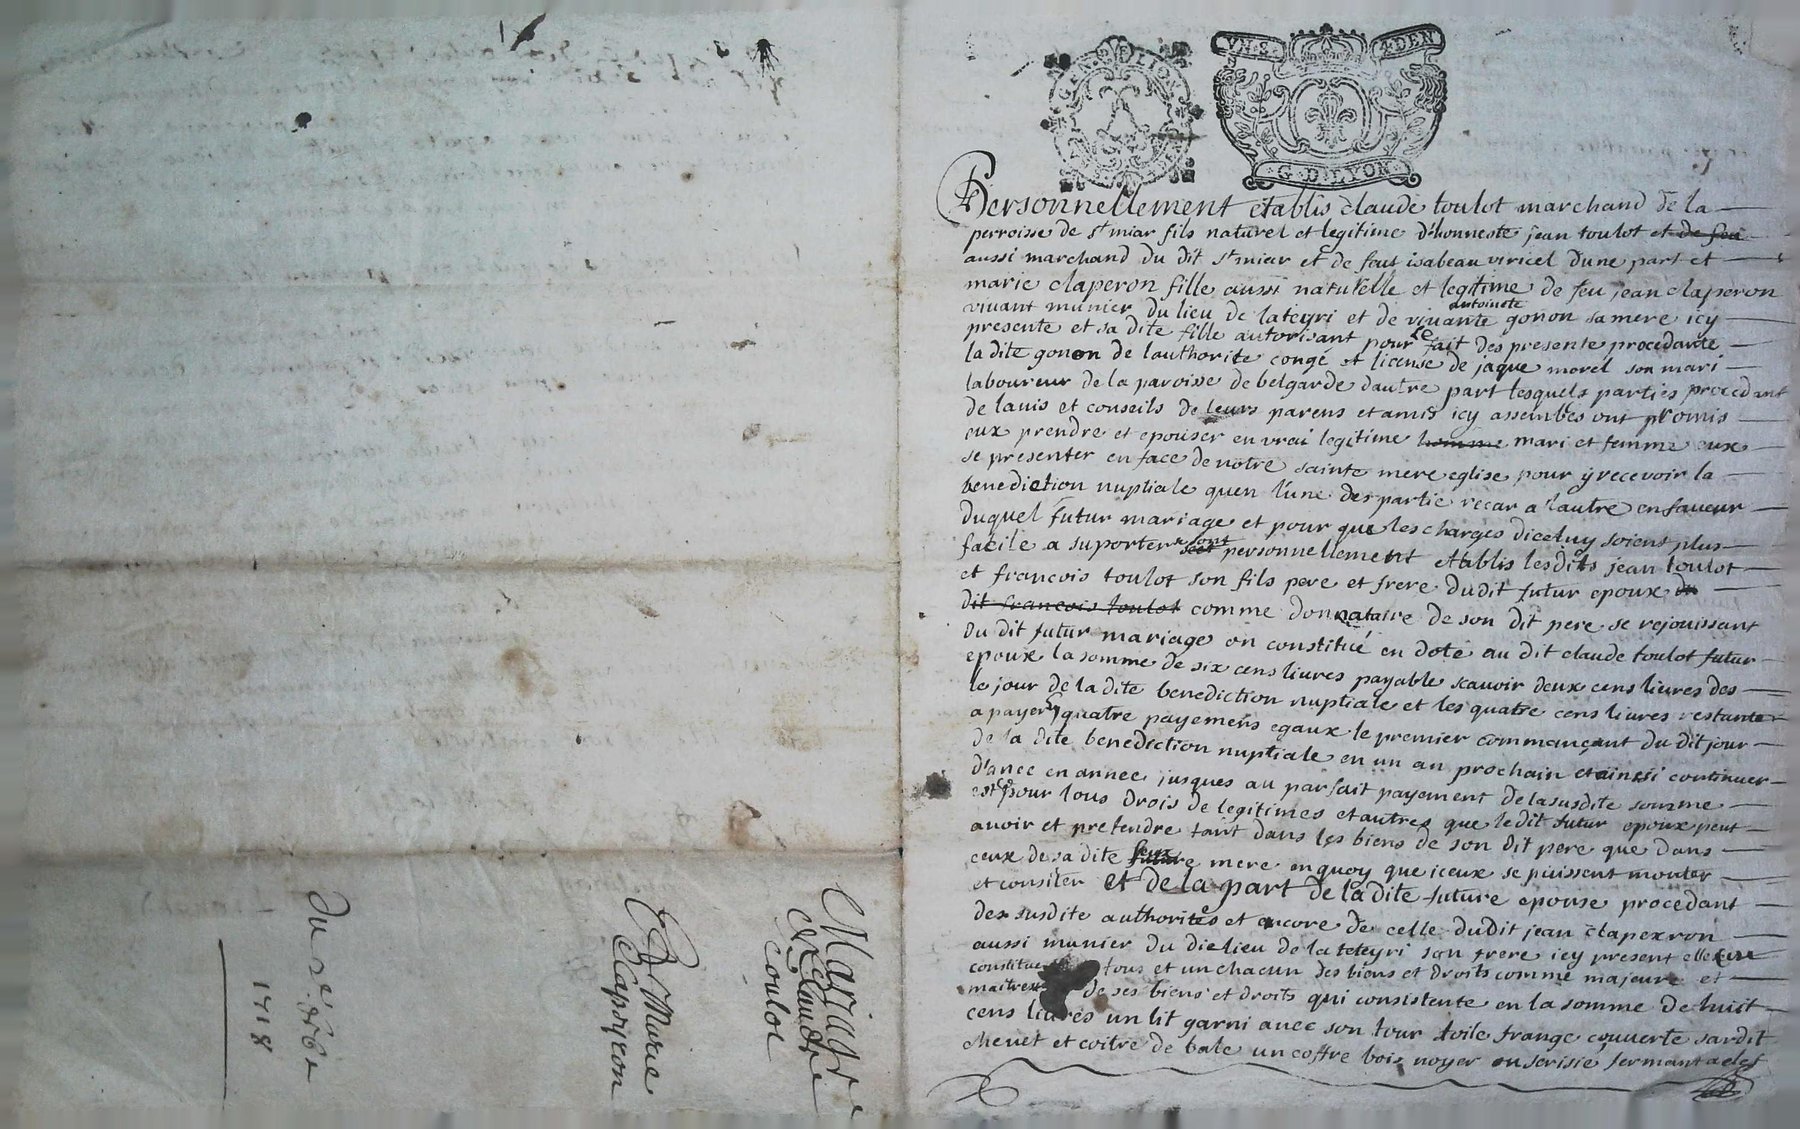 GEN DE LION
VN S 4 DEN
G D LYON
Personnellement etablis claude toulot marchand de la
perroisse de st miar fils naturel et legitime d'honneste jean toulot et de feu
aussi marchand du dit st miar et de feus isabeau viricel dune part et
marie claperon fille aussi naturelle et legitime de feu jean claperon
vivant munier du lieu de lateyri et de vivante antoinete gonon sa mere icy
presente et sa dite fille autorisant pour le fait des presente procedante
la dite gonon de lauthorite congé et license de jaque morel son mari
laboureur de la paroisse de belgarde dautre part lesquels parties procedant
de lavis et conseils de leurs parens et amis icy assembes ont promis
eux prendre et epouser en vrai legitime homme mari et femme eux
se presenter en face de notre sainte mere eglise pour ÿ recevoir la
benediction nuptiale quen l'une des partie recar a l'autre en faveur
duquel futur mariage et pour que les charges diceluy soient plus
facile a suporter sont personnellement etablis lesdits jean toulot
et francois toulot son fils pere et frere dudit futur epoux du
dit francois toulot comme donnataire de son dit pere se rejouissant
du dit futur mariage on constitué en dote au dit claude toulot futur
epoux la somme de six cens livres payable scavoir deux cens livres des
le jour de la dite benediction nuptiale et les quatre cens livres restante
a payer en quatre payemens egaux le premier commançant du dit jour
de la dite benediction nuptiale en un an prochain et ainsi continuer
d'anee en annee jusques au parfait payement de la susdite somme
est ce pour tous drois de legitimes et autres que le dit futur epoux peut
avoir et pretendre tant dans les biens de son dit pere que dans
ceux de sa dite feue mere en quoy que iceux se puissent monter
et consiter et de la part de la dite future epouse procedant
des susdite authorités et encore de celle dudit jean claperron
aussi munier du die lieu de la teteyri son frere icy present elle
constitue tous et un chacun des biens et droits comme majeure et
maitresse de ses biens et droits qui consistente en la somme de huit
cens livres un lit garni avec son tour toile frange couverte sardit
chevet et coitre de bale un coffre bois noyer ou serisié fermant a clef
Mariage
de Claude
toulot
Et Marie
Claperon
Du
1718